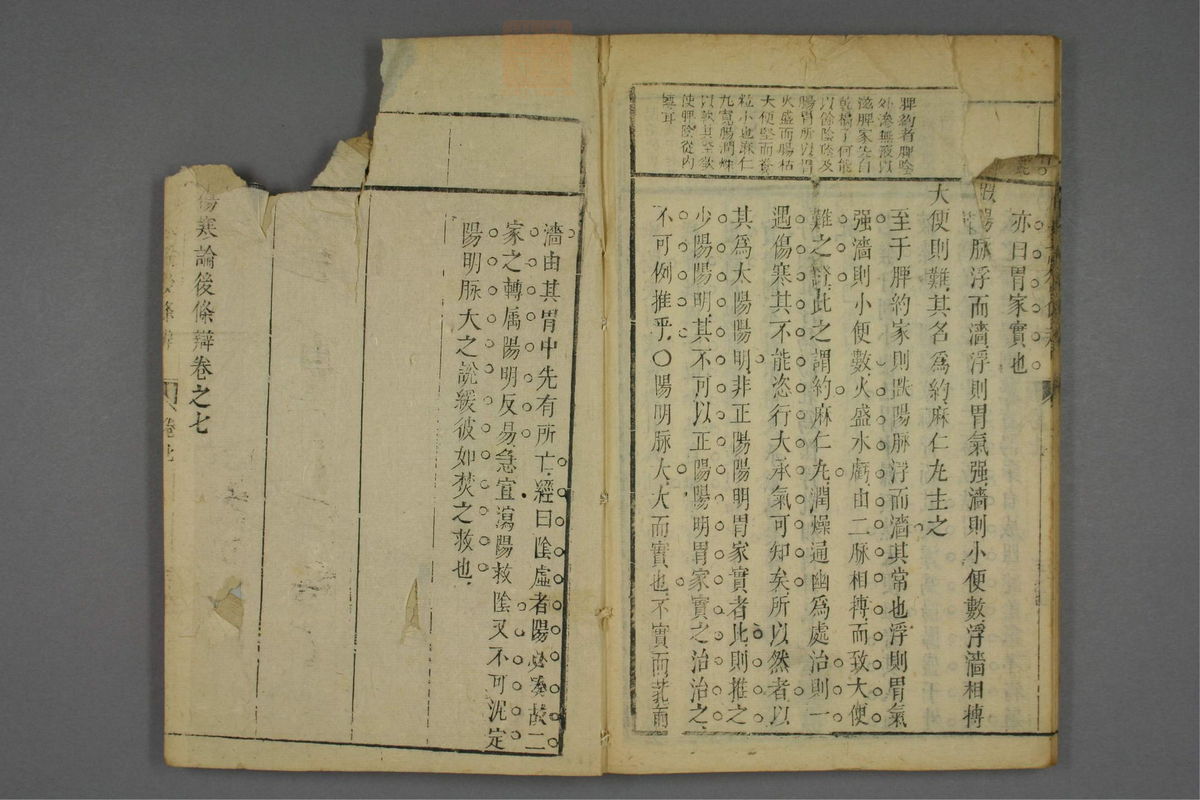 亦曰胃家實也
趺陽脉浮而濇浮則胃氣强濇則小便數浮濇相搏
大便則難其名爲約麻仁丸主之
至于脾約家則趺陽脉浮而濇其常也浮則胃氣
强濇則小便數火盛水虧由二脉相搏而致大便
難之證此之謂約麻仁丸潤燥通幽爲處治則一
遇傷寒其不能恣行大承氣可知矣所以然者以
其爲太陽陽明非正陽陽明胃家實者比則推之
少陽陽明其不可以正陽陽明胃家實之治治之
不可例推乎〇陽明脉大大而實也不實而芤而
脾約者脾陰
外滲無液以
滋脾家先自
乾槁了何能
以餘陰蔭及
腸胃所以胃
火盛而腸枯
大便堅而糞
粒小也麻仁
丸寬腸潤燥
以軟其堅欲
使脾陰從內
轉耳
濇由其胃中先有所亡經曰陰虛者陽必湊故二
家之轉屬陽明反易急宜瀉陽救陰又不可沈定
陽明脉大之說緩彼如焚之救也
傷寒論後條辯卷之七